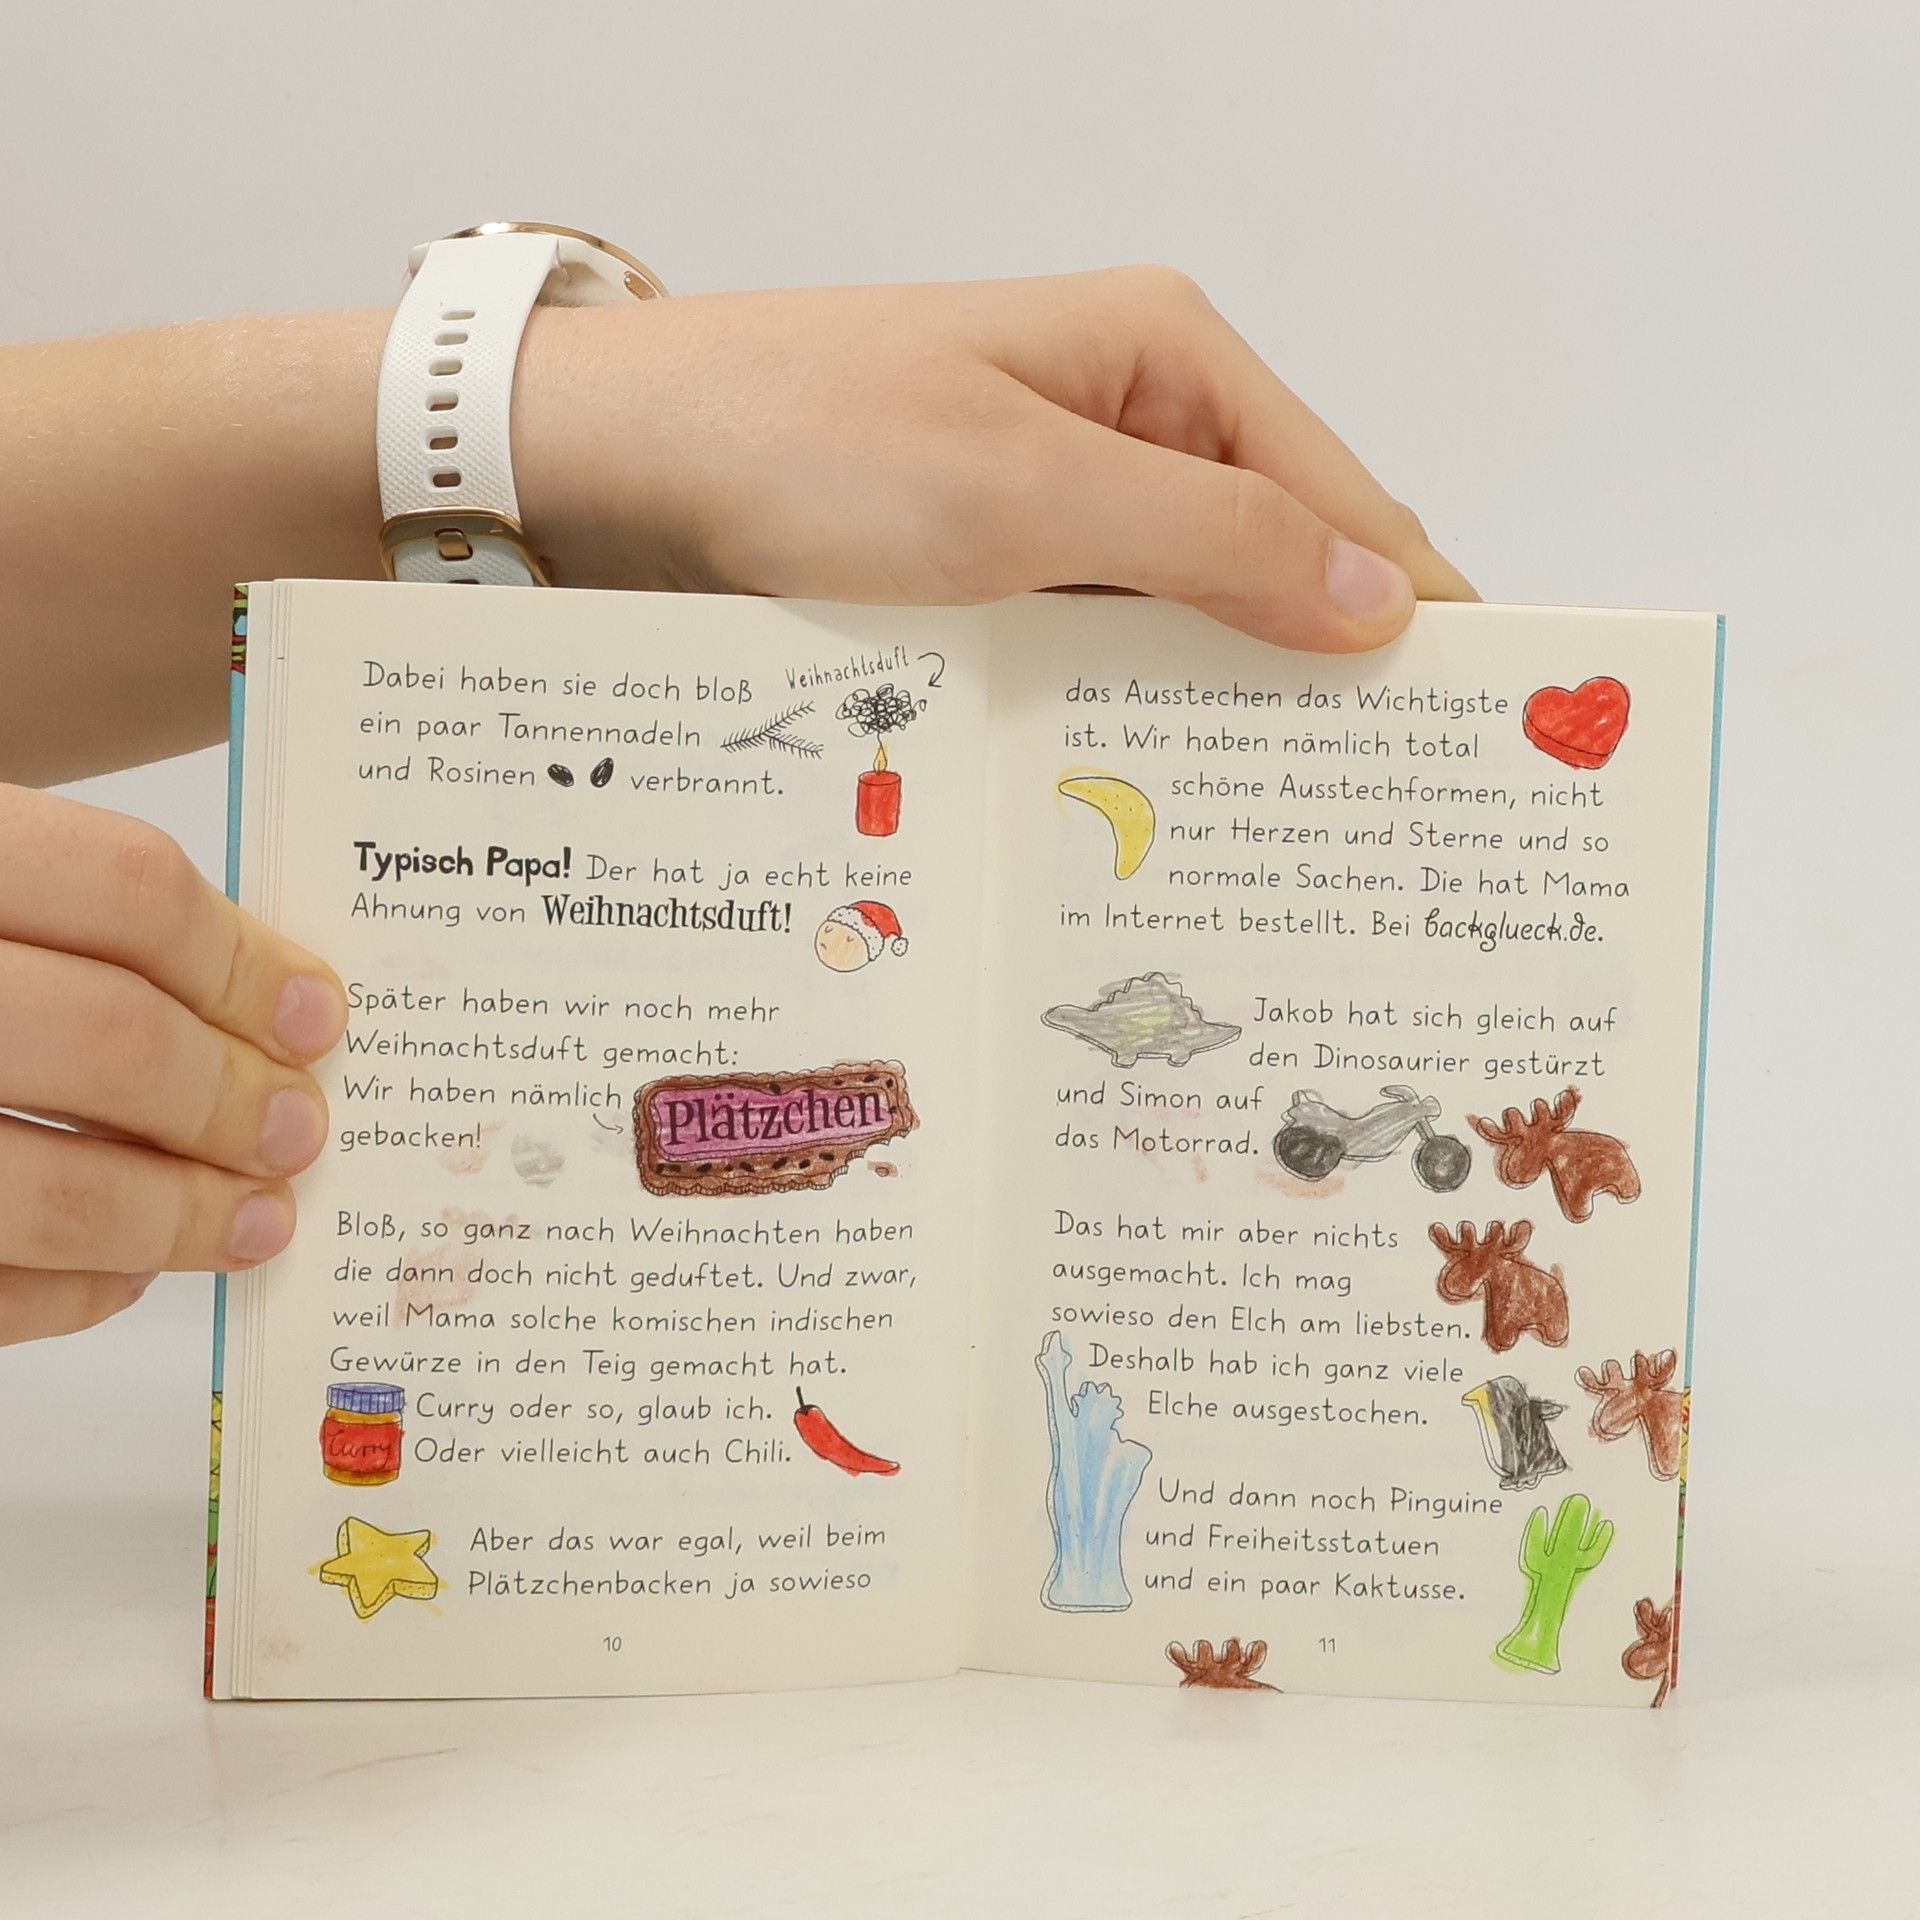 Dabei haben sie doch bloß
Weihnachtsduft
ein paar Tannennadeln
und Rosinen verbrannt.
Typisch Papa! Der hat ja echt keine
Ahnung von Weihnachtsduft!
Später haben wir noch mehr
Weihnachtsduft gemacht:
Wir haben nämlich
Plätzchen
gebacken!
Bloß, so ganz nach Weihnachten haben
die dann doch nicht geduftet. Und zwar,
weil Mama solche komischen indischen
Gewürze in den Teig gemacht hat.
Curry oder so, glaub ich.
Curry
Oder vielleicht auch Chili.
Aber das war egal, weil beim
Plätzchenbacken ja sowieso
10
das Ausstechen das Wichtigste
ist. Wir haben nämlich total
schöne Ausstechformen, nicht
nur Herzen und Sterne und so
normale Sachen. Die hat Mama
im Internet bestellt. Bei backglueck.de.
Jakob hat sich gleich auf
den Dinosaurier gestürzt
und Simon auf
das Motorrad.
Das hat mir aber nichts
ausgemacht. Ich mag
sowieso den Elch am liebsten.
Deshalb hab ich ganz viele
Elche ausgestochen.
Und dann noch Pinguine
und Freiheitsstatuen
und ein paar Kaktusse.
11